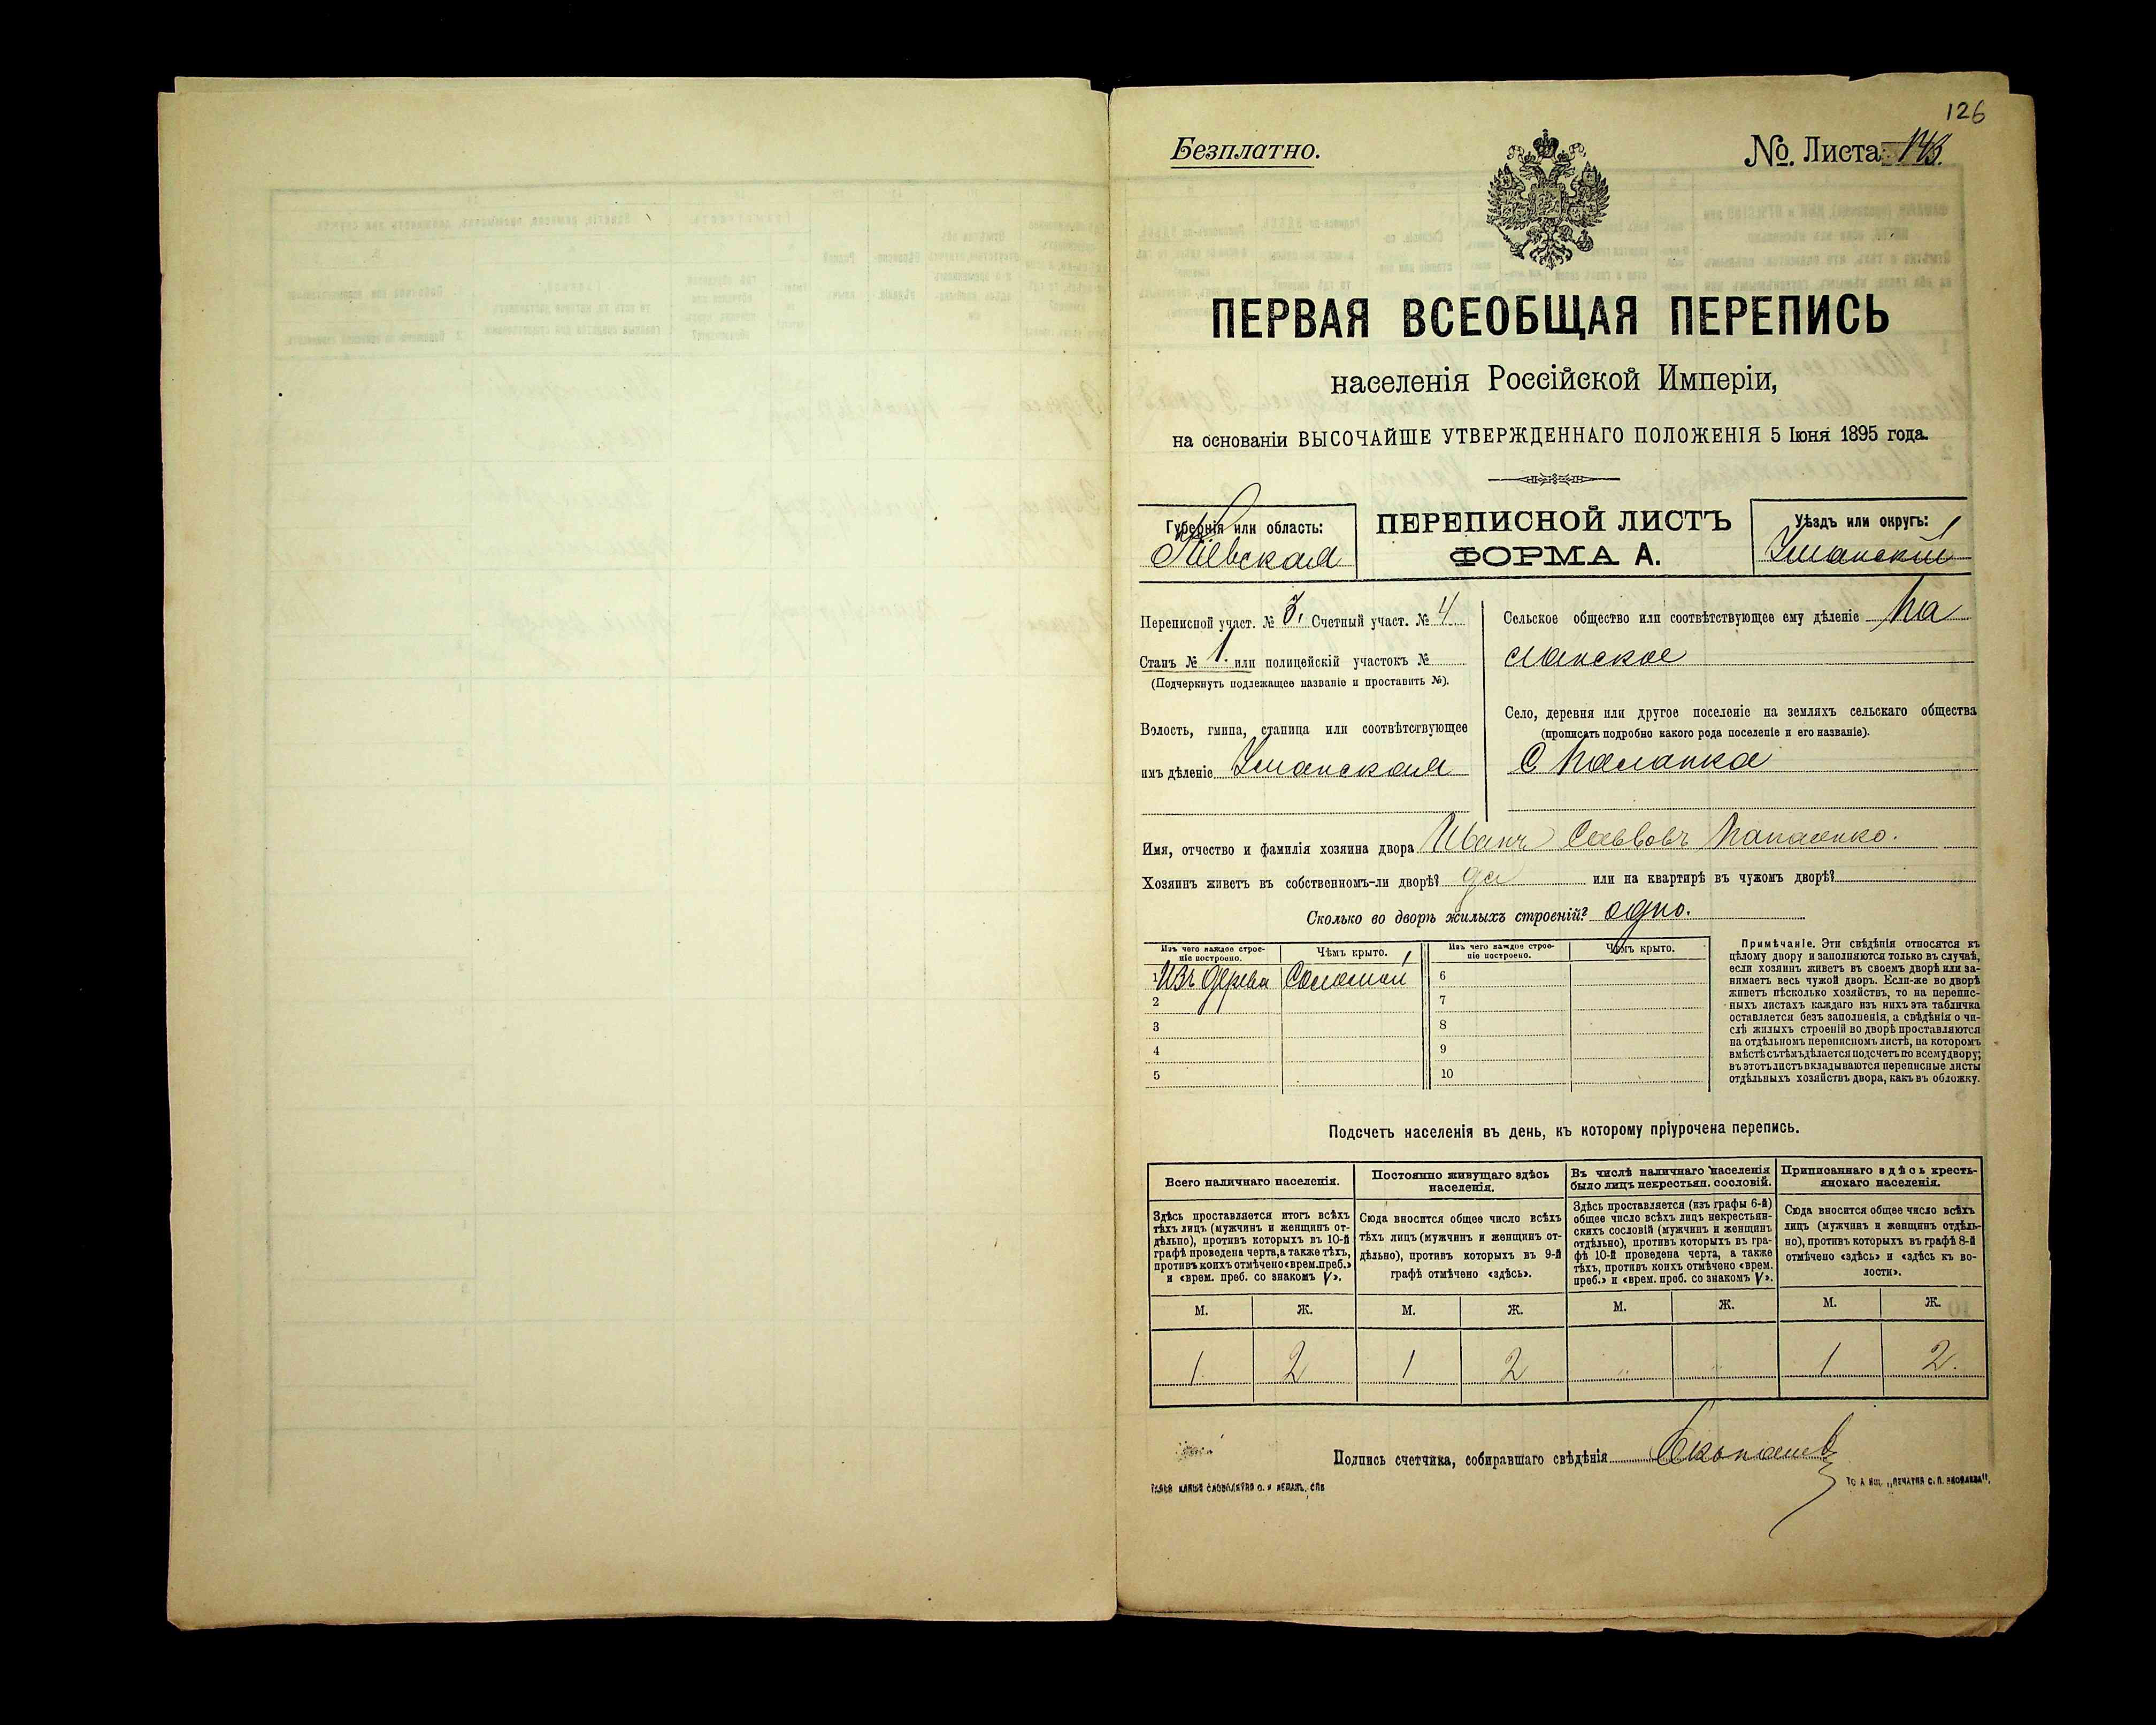 126
Безплатно.
№. Листа 143.
ПЕРВАЯ ВСЕОБЩАЯ ПЕРЕПИСЬ
населенія Россійской Имперіи,
на основаніи ВЫСОЧАЙШЕ УТВЕРЖДЕННАГО ПОЛОЖЕНІЯ 5 Іюня 1895 года.
Губернія или область:
Кіевская
ПЕРЕПИСНОЙ ЛИСТЪ
ФОРМА А.
Уѣздъ или округъ:
Уманскій
Переписной участ. № 3, Счетный участ. № 4
Станъ № 1. или полицейскій участокъ №
(Подчеркнуть подлежащее названіе и проставить №).
Волость, гмина, станица или соотвѣтствующее
имъ дѣленіе Уманская
Сельское общество или соотвѣтствующее ему дѣленіе Па
ланское
Село, деревня или другое поселеніе на земляхъ сельскаго общества
(прописать подробно какого рода поселеніе и его названіе).
С Паланка
Имя, отчество и фамилія хозяина двора Иванъ Саввовъ
Хозяинъ живетъ въ собственномъ-ли дворѣ? да или на квартирѣ въ чужомъ дворѣ?
Сколько во дворѣ жилыхъ строеній? одно.
Изъ чего каждое строе-
ніе построено.
Чѣмъ крыто.
Изъ чего каждое строе-
ніе построено.
Чѣмъ крыто.
1 Изъ дерева Соломой 6
2 7
3 8
4 9
5 10
Примѣчаніе. Эти свѣдѣнія относятся къ
цѣлому двору и заполняются только въ случаѣ,
если хозяинъ живетъ въ своемъ дворѣ или за-
нимаетъ весь чужой дворъ. Если-же во дворѣ
живетъ нѣсколько хозяйствъ, то на перепис-
ныхъ листахъ каждаго изъ нихъ эта табличка
оставляется безъ заполненія, а свѣдѣнія о чи-
слѣ жилыхъ строеній во дворѣ проставляются
на отдѣльномъ переписномъ листѣ, на которомъ
вмѣстѣ съ тѣмъ дѣлается подсчетъ по всему двору;
въ этотъ листъ вкладываются переписные листы
отдѣльныхъ хозяйствъ двора, какъ въ обложку.
Подсчетъ населенія въ день, къ которому пріурочена перепись.
Всего наличнаго населенія.
Здѣсь проставляется итогъ всѣхъ
тѣхъ лицъ (мужчинъ и женщинъ от-
дѣльно), противъ которыхъ въ 10-й
графѣ проведена черта, а также тѣхъ,
противъ коихъ отмѣчено «врем. преб.»
и «врем. преб. со знакомъ V».
Постоянно живущаго здѣсь
населенія.
Сюда вносится общее число всѣхъ
тѣхъ лицъ (мужчинъ и женщинъ от-
дѣльно), противъ которыхъ въ 9-й
графѣ отмѣчено «здѣсь».
Въ числѣ наличнаго населенія
было лицъ некрестьян. сословій.
Здѣсь проставляется (изъ графы 6-й)
общее число всѣхъ лицъ некрестьян-
скихъ сословій (мужчинъ и женщинъ
отдѣльно), противъ которыхъ въ гра-
фѣ 10-й проведена черта, а также
тѣхъ, противъ коихъ отмѣчено «врем.
преб.» и «врем. преб. со знакомъ V».
Приписаннаго здѣсь кресть-
янскаго населенія.
Сюда вносится общее число всѣхъ
лицъ (мужчинъ и женщинъ отдѣль-
но), противъ которыхъ въ графѣ 8-й
отмѣчено «здѣсь» и «здѣсь къ во-
лости».
М. Ж. М. Ж. М. Ж. М. Ж.
1 2 1 2 „ „ 1 2.
Подпись счетчика, собиравшаго свѣдѣнія